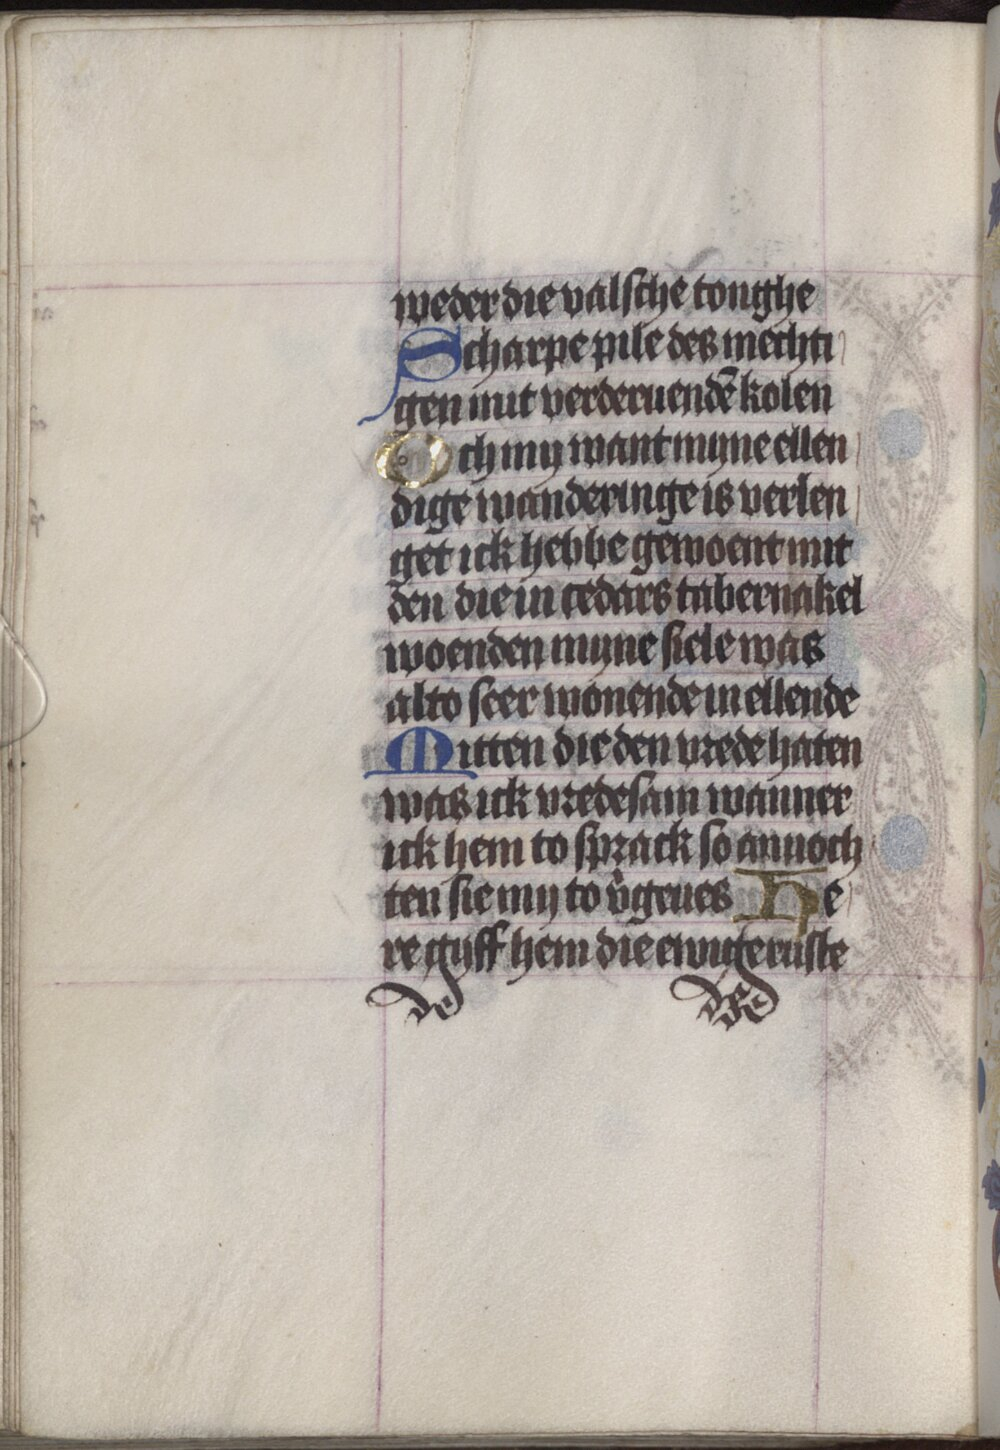 weder die valsche tonghe
Scharpe pile des mechti
gen mit verderuendē kolen
Och my want myne ellen
dige wanderinge is verlen
get ick hebbe gewoent mit
den die in cedars tabernakel
woenden myne siele was
alto seer wonende in ellende
Mitten die den vrede haten
was ick vredesam wanner
ick hem to sprack so anuoch
ten sie my to v̓geues He
re gyff hem die ewige ruste